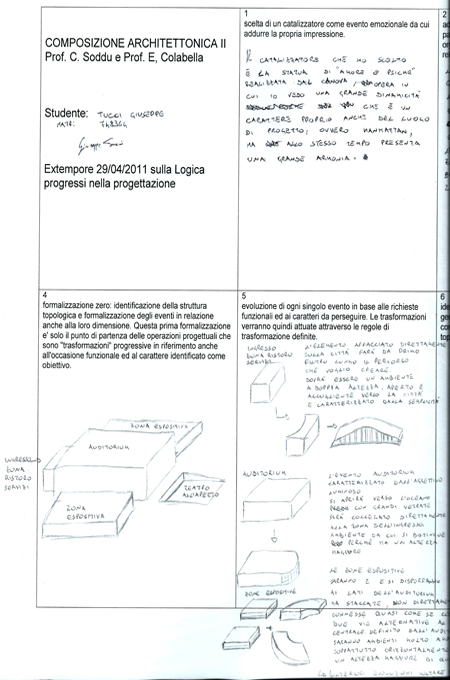 COMPOSIZIONE ARCHITETTONICA II
Prof. C. Soddu e Prof. E, Colabella
Studente: TUCCI GIUSEPPE
MATR:
Extempore 29/04/2011 sulla Logica
progressi nella progettazione
1
scelta di un catalizzatore come evento emozionale da cui
addurre la propria impressione.
IL CATALIZZATORE CHE HO SCELTO
È LA STATUA DI "AMORE E PSICHE"
REALIZZATA DAL CANOVA, OPERA IN
CUI IO VEDO UNA GRANDE DINAMICITÀ
CHE È UN
CARATTERE PROPRIO ANCHE DEL LUOGO
DI PROGETTO, OVVERO MANHATTAN,
MA ALLO STESSO TEMPO PRESENTA
UNA GRANDE ARMONIA.
2
4
formalizzazione zero: identificazione della struttura
topologica e formalizzazione degli eventi in relazione
anche alla loro dimensione. Questa prima formalizzazione
e' solo il punto di partenza delle operazioni progettuali che
sono "trasformazioni" progressive in riferimento anche
all'occasione funzionale ed al carattere identificato come
obiettivo.
ZONA ESPOSITIVA
AUDITORIUM
INGRESSO
ZONA
RISTORO
SERVIZI
TEATRO
ALL'APERTO
ZONA
ESPOSITIVA
5
evoluzione di ogni singolo evento in base alle richieste
funzionali ed ai caratteri da perseguire. Le trasformazioni
verranno quindi attuate attraverso le regole di
trasformazione definite.
INGRESSO
ZONA RISTORO
SERVIZI
L'ELEMENTO AFFACCIATO DIRETTAMENTE
SULLA CITTÀ FARÀ DA PRIMO
IL PERCORSO
CHE VOGLIO CREARE.
DOVRÀ ESSERE UN AMBIENTE
A DOPPIA ALTEZZA, APERTO E
ACCOGLIENTE VERSO LA CITTÀ
E CARATTERIZZATO DALLA
AUDITORIUM
L'EVENTO AUDITORIUM
CARATTERIZZATO DALL'AGGETTIVO
LUMINOSO
SI APRIRÀ VERSO L'OCEANO
CON GRANDI VETRATE
SARÀ COLLEGATO DIRETTAMENTE
ALLA ZONA DELL'INGRESSO
AMBIENTE DA CUI SI DISTINGUE
PERCHÉ HA UN ALTEZZA
MAGGIORE
ZONE ESPOSITIVE
LE ZONE ESPOSITIVE
SARANNO 2 E SI DISPORRANNO
AI LATI DELL'AUDITORIUM
MA STACCATE, NON
CONNESSE QUASI COME SE
DUE VIE ALTERNATIVE AL
CENTRALE DEFINITO
SARANNO AMBIENTI MOLTO
SOPRATTUTTO ORIZZONTALMENTE
UN ALTEZZA MAGGIORE DI
6